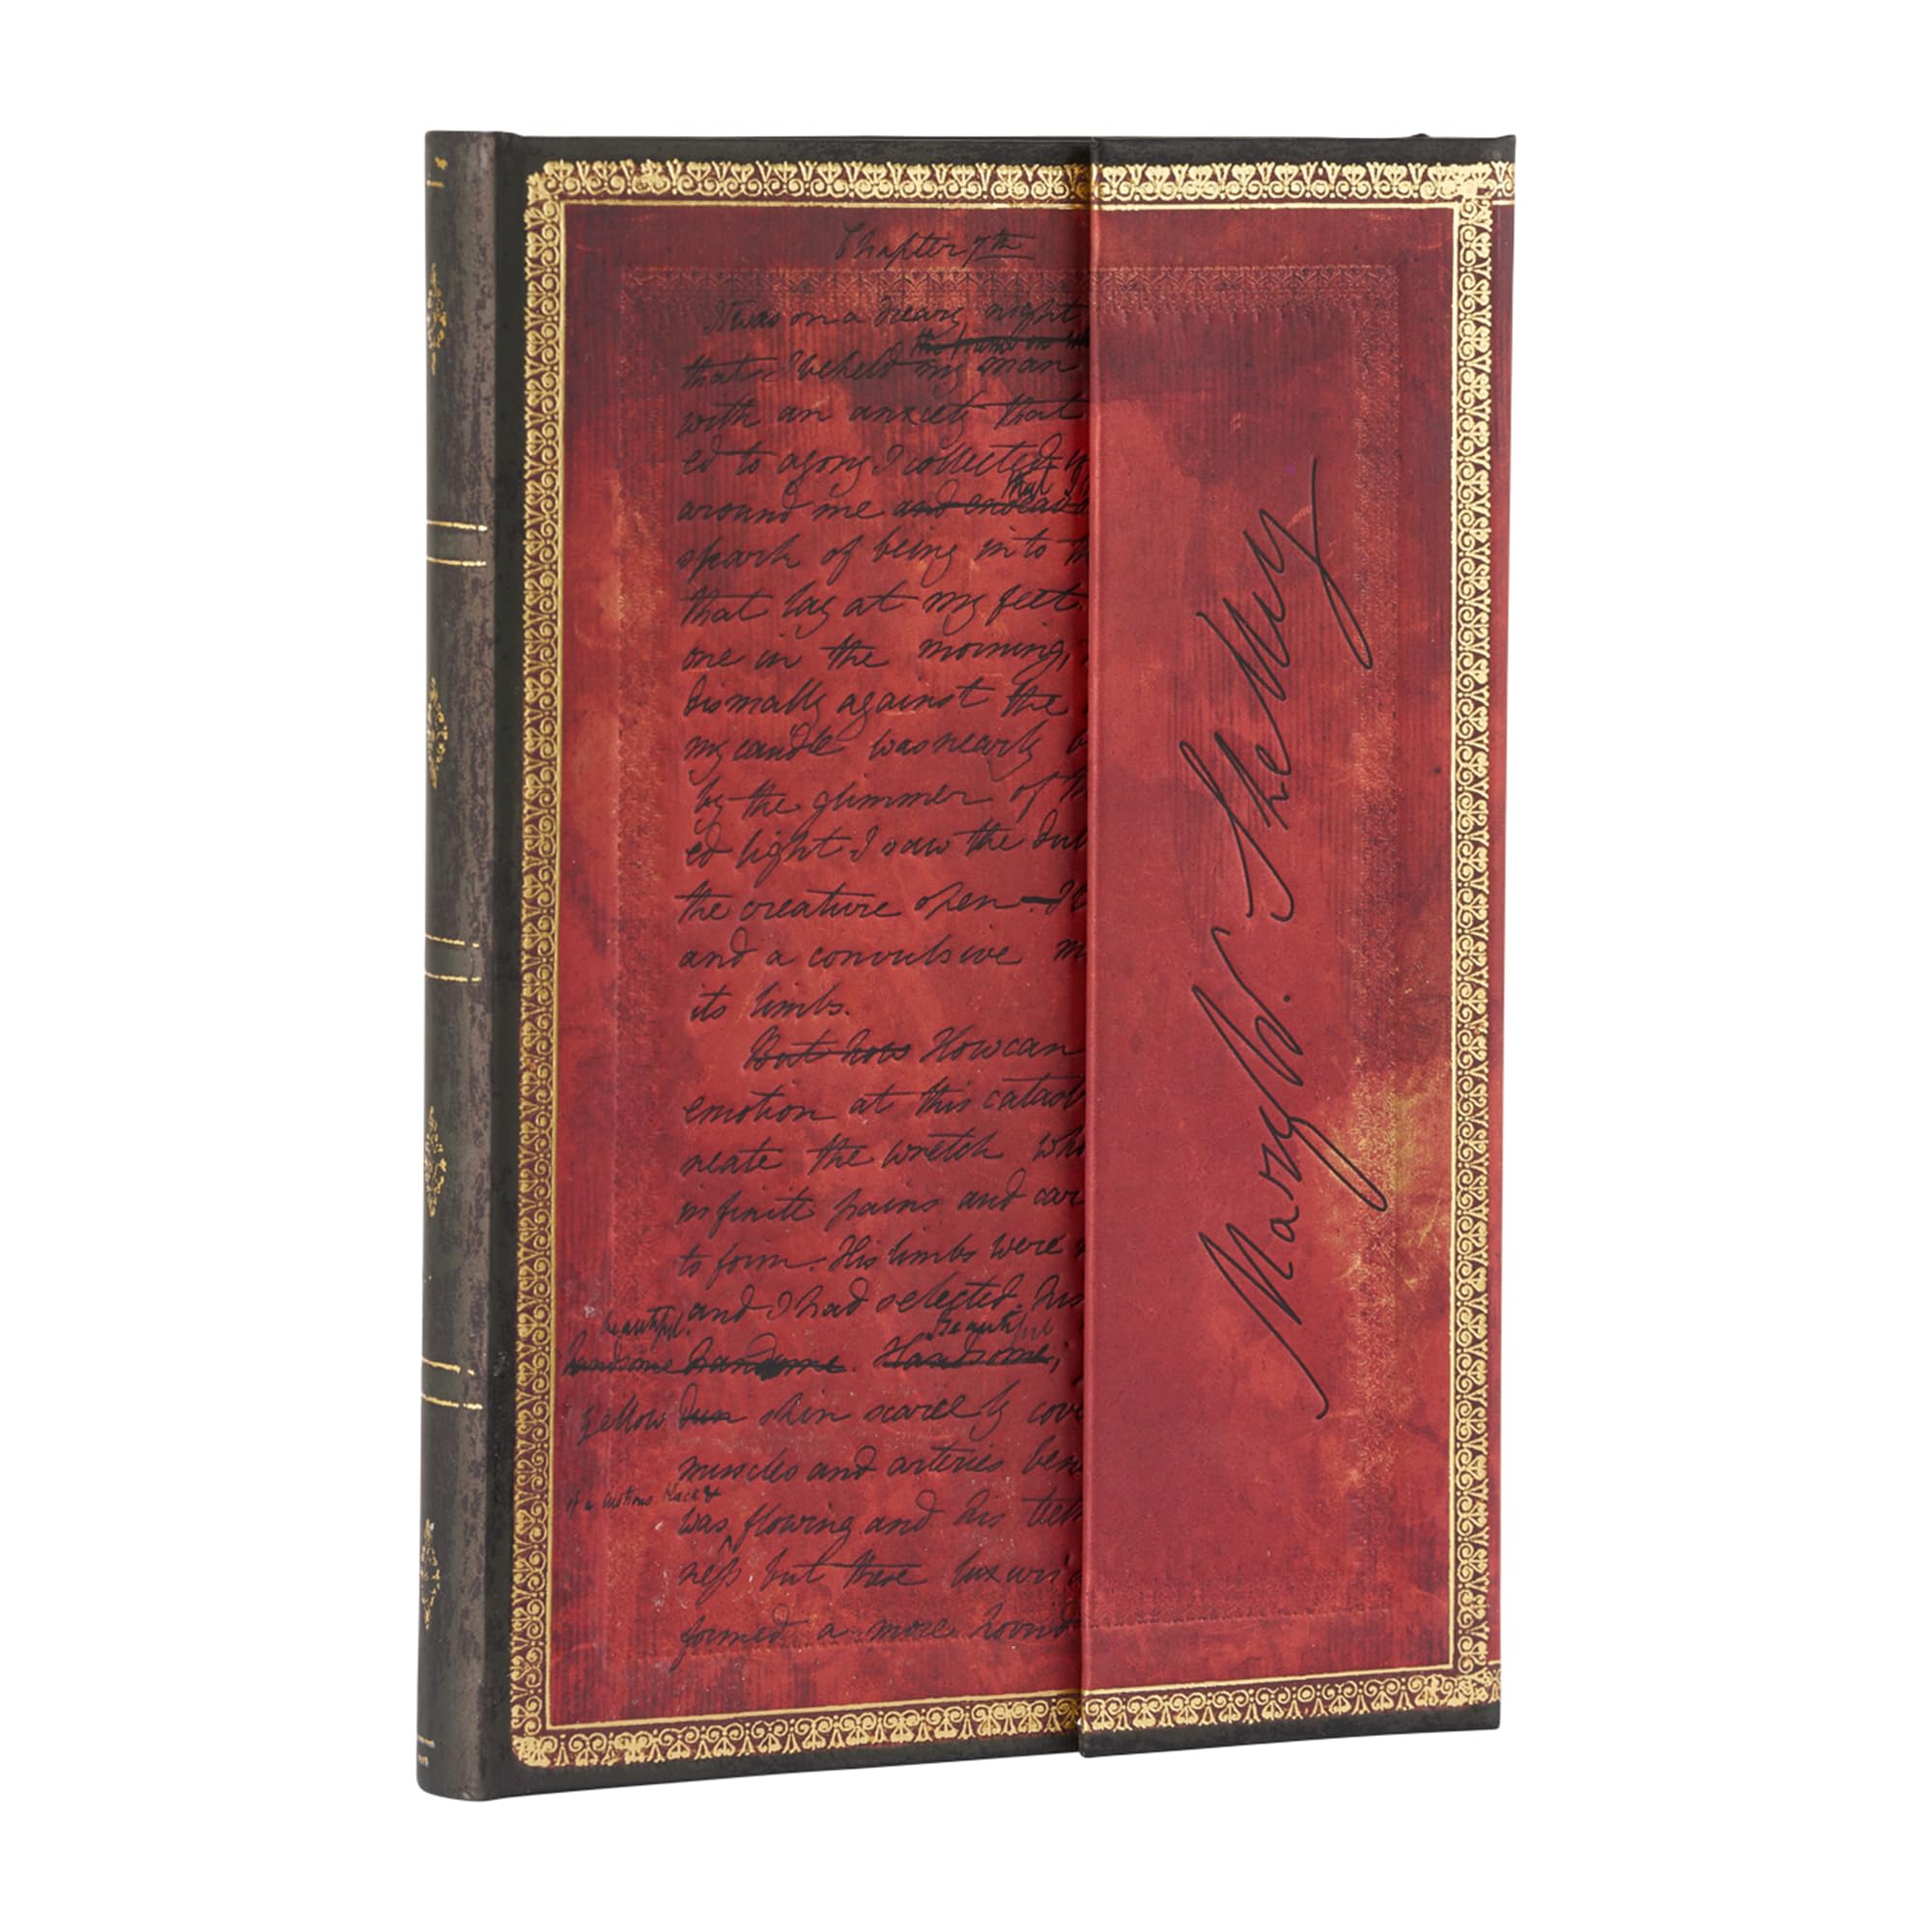 Chapter 7th
It was on a dreary night
that I beheld my man
with an anxiety that
ed to agony I collected
around me and endeavo
that
spark of being into th
that lay at my feet.
one in the morning,
dismally against the
my candle was nearly b
by the glimmer of th
ed light I saw the dul
the creature open – It
and a convulsive m
its limbs.
But how How can
emotion at this catast
neate the wretch who
infinite pains and car
to form. His limbs were
and I had selected his
beautiful. Beautiful
handsome handsome. Handsome;
yellow dun skin scarcely cove
muscles and arteries ben
of a lustrous black &
was flowing and his teeth
ness but these luxuri
formed a more horrid
Mary W. Shelley